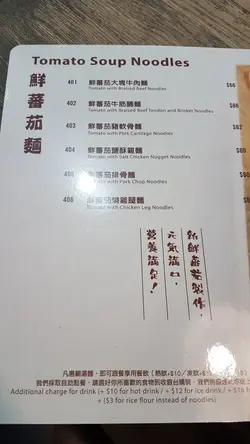 Tomato Soup Noodles
鮮蕃茄麵
401 鮮蕃茄大塊牛肉麵
Tomato with Braised Beef Noodles
402 鮮蕃茄牛筋腩麵
Tomato with Braised Beef Tendon and Brisket Noodles
403 鮮蕃茄豬軟骨麵
Tomato with Pork Cartilage Noodles
404 鮮蕃茄鹽酥雞麵
Tomato with Salt Chicken Nugget Noodles
蕃茄排骨麵
Tomato with Pork Chop Noodles
406 蕃茄燒雞腿麵
Tomato with Chicken Leg Noodles
新鮮蕃茄製作，
元氣滿口，
營養滿足！
凡惠顧湯麵，即可跟餐享用餐飲
我們採取自助點餐，請選好你所喜歡的食物到收銀台購買
Additional charge for drink (+ $10 for hot drink / + $12 for ice drink / + $16 fo
+ ($3 for rice flour instead of noodles)